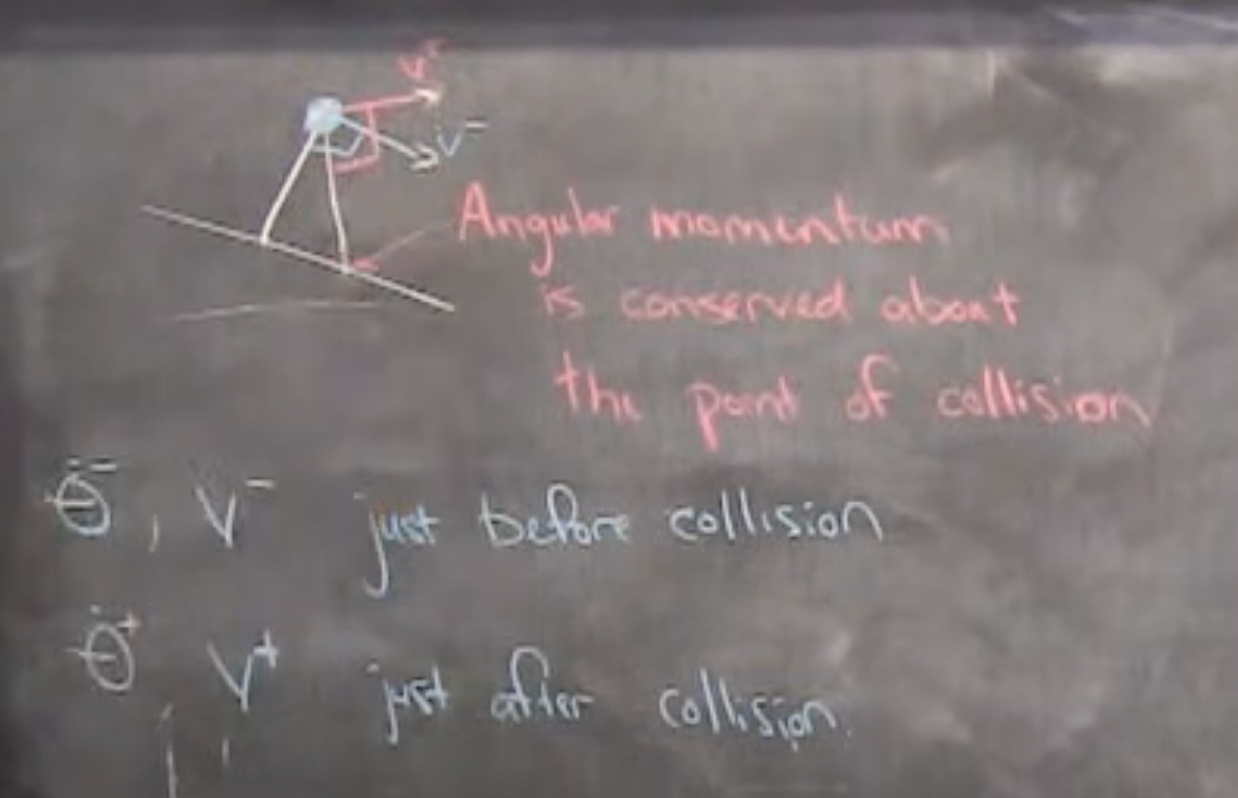 V⁺
V⁻
Angular momentum
is conserved about
the point of collision
θ̇⁻, V⁻ just before collision
θ̇⁺, V⁺ just after collision.